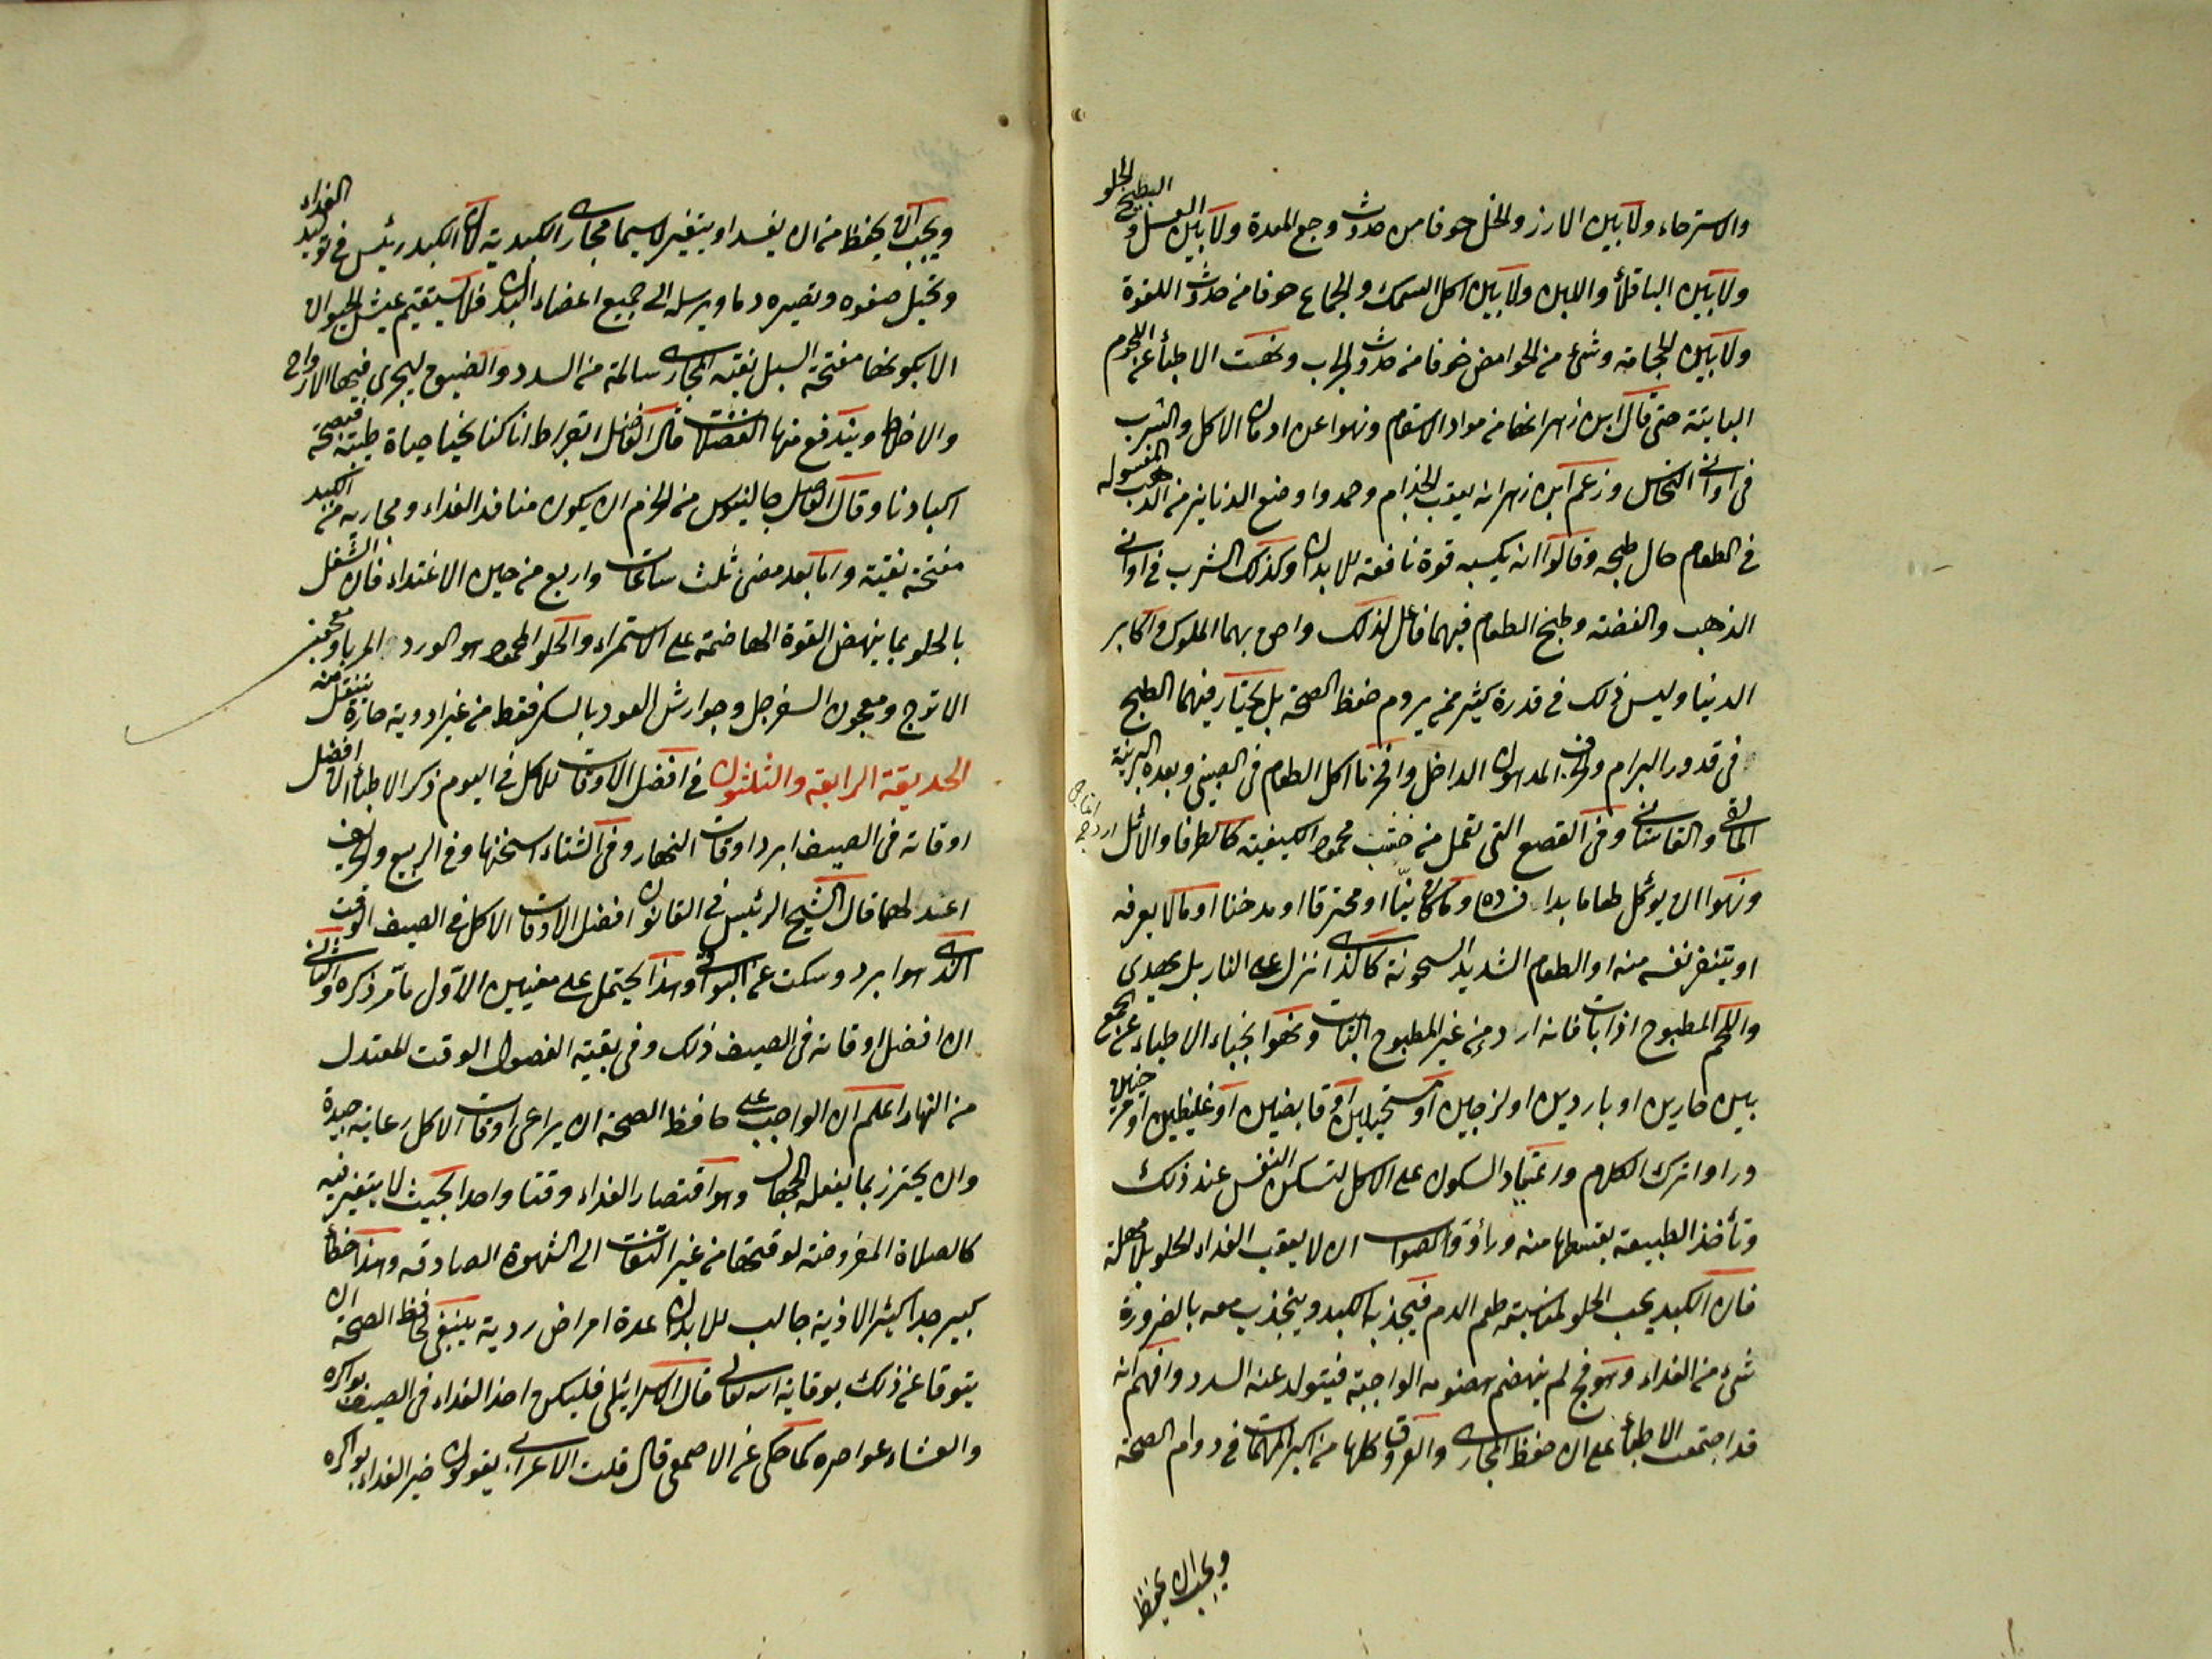 والاسترخاء ولا بين الارز والخل خوفا من حدوث وجع المعدة ولا بين العسل و البطيخ الحلو
ولا بين الباقلا واللبن ولا بين اكل السمك والجماع خوفا من حدوث اللقوة
ولا بين الحجامة وشئ من الحوامض خوفا من حدوث الجرب ونهت الاطباء عن اللحوم
البايتة حتى قال ابن زهر انها من مواد الاسقام ونهوا عن ادمان الاكل والشرب
فى اوانى النحاس وزعم ابن زهر انه يعقب الجذام وحمدوا وضع الدنانير من الذهب المغسولة
فى الطعام حال طبخه وقالوا انه يكسبه قوة نافعة للابدان وكذلك الشرب فى اوانى
الذهب والفضة وطبخ الطعام فيهما فاعل لذلك واحق بهما الملوك واكابر
الدنيا وليس ذلك فى قدرة كثير ممن يروم حفظ الصحة بل يختار فيهما الطبخ
فى قدور البرام والخزف المدهون الداخل واخترنا اكل الطعام فى الصينى وبعده البرنية
المالقى والقاشانى وفى القصع التى تعمل من خشب محمود الكيفية كالطرفا والاثل
ونهوا ان يوكل طعاما بدا فساده وما كان نيّا او محترقا او مدخنا او ما لا يعرفه
او يتنفر نفسه منه او الطعام الشديد السخونة كالذى انزل على النار بل يهدى
واللحم المطبوخ اذا بات فانه اردى من غير المطبوخ البتات ونهوا نجباء الاطباء عن الجمع
بين حارين او باردين او لزجين او مستحيلين او قابضين او غليظين او مرخيين
وراوا ترك الكلام واعتماد السكون على الاكل لتسكن النفس عند ذلك
وتأخذ الطبيعة بقسطها منه ورأوا الصواب ان لا يعقب الغداء الحلو بلا مهلة
فان الكبد يحب الحلو لمناسبته طعم الدم فيجذبه الكبد وينجذب معه بالضرورة
شئ من الغداء وهو فج لم ينهضم هضومه الواجبة فيتولد عنه السدد وافهم انه
قد اجتمعت الاطباء على ان حفظ المجارى والعروق كلها من اكبر المهمات فى دوام الصحة
ويجب ان يحفظ
ويجب ان يحفظ من ان يفسد او يتغير لا سيما مجارى الكبدية لان الكبد رئيس فى توليد الغداء
وتحيل صفوه وتصيره دما ويرسله الى جميع اعضاء البدن فلا يستقيم عيش الحيوان
الا بكونها مفتحة السبل نقية المجارى سالمة من السدد والضيق ليجرى فيها الارواح
والاخلاط ويندفع منها الفضلات قال الفاضل ابقراط انا كنا نحيا حياة طيبة بصحة
اكبادنا وقال الفاضل جالينوس من الحزم ان يكون منافذ الغداء ومجاريه من الكبد
مفتحة نقية واما بعد مضى ثلث ساعات واربع من حين الاغتداء فان الشغل
بالحلو مما ينهض القوة الهاضمة على الاستمراء والحلو المحمود هو الورد المربا ومعجون
الاترج ومعجون السفرجل وجوارش العود بالسكر فقط من غير ادوية حارة يتنقل منه
الحديقة الرابعة والثلثون فى افضل الاوقات للاكل فى اليوم ذكر الاطباء ان افضل
اوقاته فى الصيف ابرد اوقات النهار وفى الشتاء اسخنها وفى الربيع والخريف
اعدلها قال الشيخ الرئيس فى القانون افضل الاوقات الاكل فى الصيف الوقت
الذى هو ابرد وسكت عن البواقى وهذا يحتمل على معنيين الاول ما مر ذكره والثانى
ان افضل اوقاته فى الصيف ذلك وفى بقية الفصول الوقت المعتدل
من النهار اعلم ان الواجب على حافظ الصحة ان يراعى اوقات الاكل رعاية جيدة
وان يحترز بما يفعله الجهال وهو اقتصار الغداء وقتا واحدا بحيث لا يتغير فيه
كالصلاة المفروضة لوقتها من غير التفات الى الشهوة الصادقة وهذا خطأ
كبير جدا كثير الاذية جالب للابدان عدة امراض ردية ينبغى لحافظ الصحة ان
يتوقا عن ذلك بوقاية الله تعالى قال الاسرائيلى فليكن اخذ الغداء فى الصيف بواكره
والعشاء عواصره كما حكى عن الاصمعى قال قلت الاعرابى يقولون خير الغداء بواكره